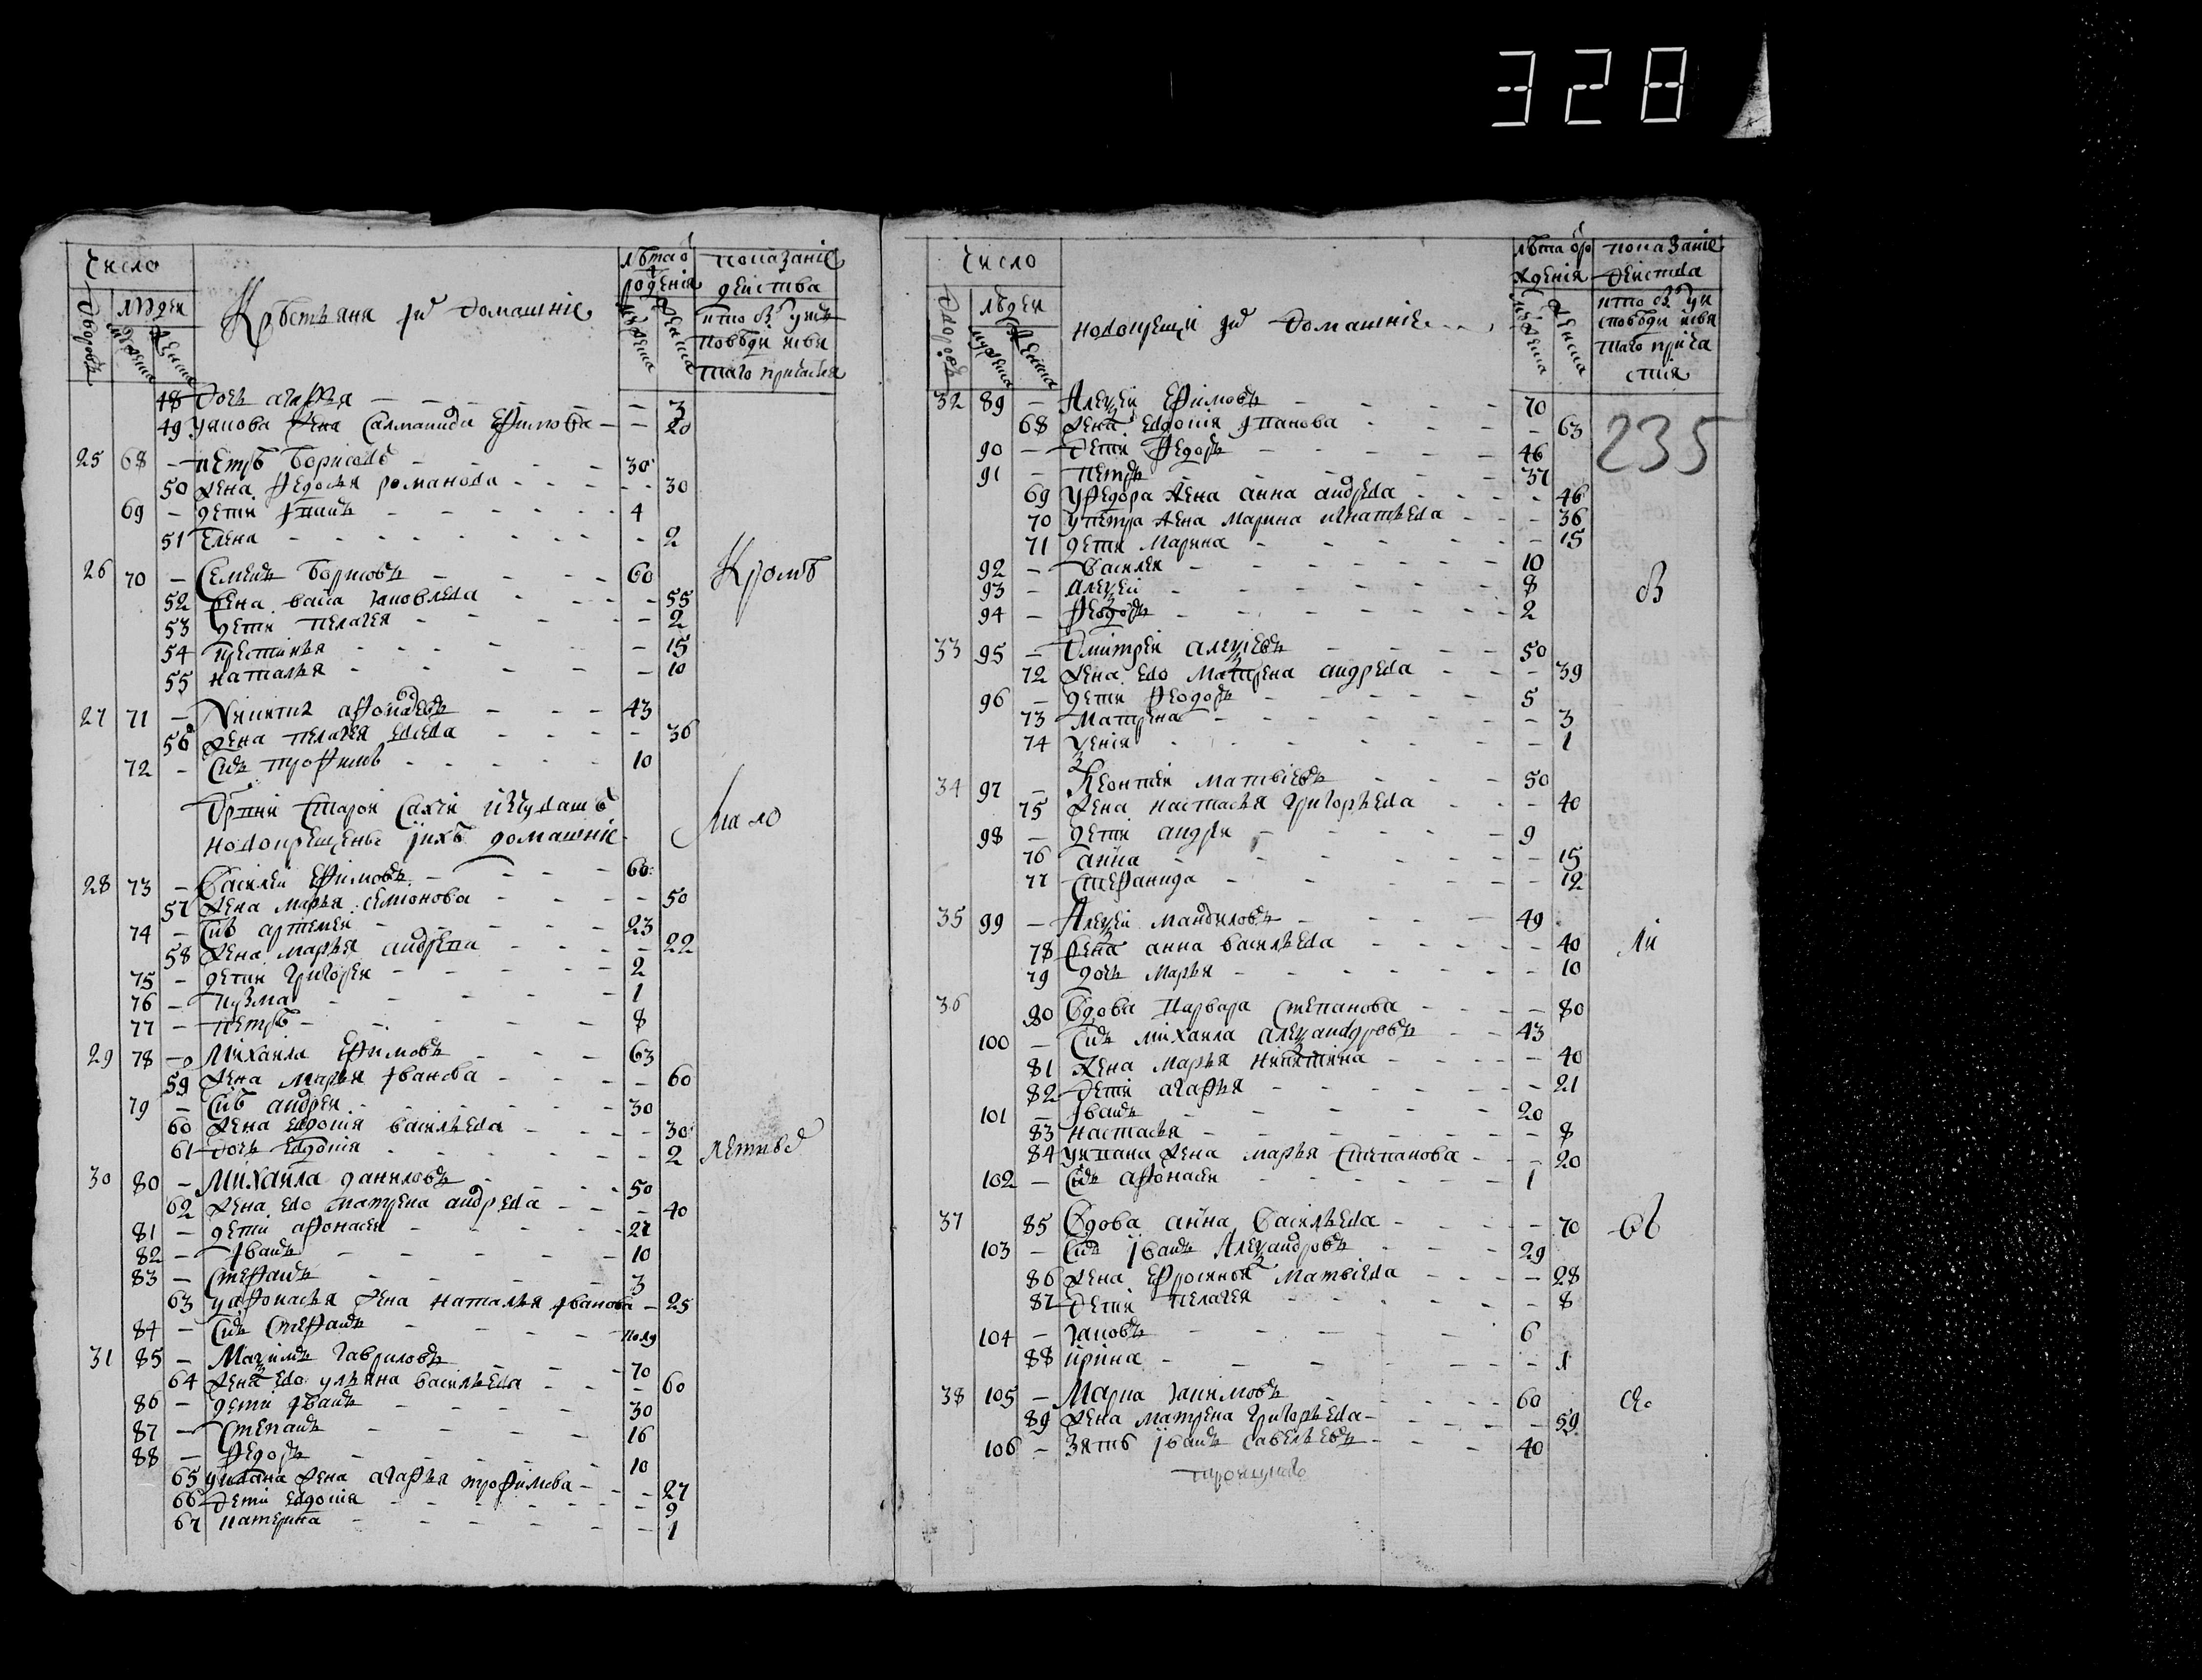 328
Число
Дворовъ
людеи
мужеска
женска
Крестьяня и домашніе
лѣта о
рожденія
мужеска
женска
показаніе
дѣиства
кто былъ у испо
повѣди и свя
таго причастія
48 дочь агафья - 3
49 Якова жена Саламанида Ефимова - 20
25 68 - петръ борисовъ - 30
50 жена Федосья романова - 30
69 - дети Іванъ - 4
51 Елена - 2
26 70 - Семенъ борисовъ - 60
52 жена васа яковлева - 55
53 дети пелагея - 2
54 крестинья - 15
55 наталья - 10
27 71 - Никита афонасевъ - 43
56 жена пелагея - 36
72 - Снъ трофимъ - 10
Дрвни Старои
новокрещены ихъ домашніе
28 73 - Василеи Ефимовъ - 60
57 жена марья семионова - 50
74 - Снъ артемеи - 23
58 жена марья андреева - 22
75 - дети григореи - 2
76 - кузма - 1
77 - петръ - 8
29 78 - михаила Ефимовъ - 63
59 жена Марья Іванова - 60
79 - Снъ андреи - 30
60 жена евдокия васильева - 30
61 дочь евдокия - 2
30 80 - михаила даниловъ - 50
62 жена ево матрена андреева - 40
81 - дети афонасеи - 27
82 - Іванъ - 10
83 - Стефанъ - 3
63 у афонасья жена наталья Іванова - 25
84 - Снъ Стефанъ - полу
31 85 - Маѯимъ гавриловъ - 70
64 жена ево ульяна васильева - 60
86 - дети Іванъ - 30
87 - Степанъ - 16
88 - Федоръ - 10
65 у Ивана жена агафья трофимова - 27
66 дети евдокия - 9
67 катерина - 1
Кромѣ
мало
летныхъ
Число
Дворовъ
людеи
мужеска
женска
новокрещени и домашніе
лѣта о ро
жденія
мужеска
женска
показаніе
деиства
кто былъ у и
споведи и свя
таго прича
стия
235
32 89 - Алеѯеи Ефимовъ - 70
68 жена Евдокия Іванова - 63
90 - дети Федоръ - 46
91 - петръ - 37
69 у Федора жена анна андреева - 46
70 у петра жена марина игнатьева - 36
71 дети Марина - 15
92 - василеи - 10
93 - алеѯеи - 8
94 - Федоръ - 2
33 95 - Дмитреи алеѯеевъ - 50
72 жена ево Матрена андреева - 39
96 - дети Феодоръ - 5
73 Матрена - 3
74 Ѯения - 1
34 97 - Леонтеи матвиевъ - 50
75 жена настасья григорьева - 40
98 - дети андреи - 9
76 анна - 15
77 Стефанида - 12
35 99 - Алеѯеи маниловъ - 49
78 жена анна васильева - 40
79 дочь Марья - 10
36 80 Вдова варвара Степанова - 80
100 - Снъ михаила алеѯандровъ - 43
81 жена Марья Никитина - 40
82 дети агафья - 21
101 - Іванъ - 20
83 настасья - 8
84 у ивана жена марья Степанова - 20
102 - Снъ афонасеи - 1
37 85 Вдова анна Васильева - 70
103 - Снъ Іванъ Алеѯандровъ - 29
86 жена Ефросинья Матвиева - 28
87 дети пелагея - 8
104 - Яковъ - 6
88 ирина - 1
38 105 - Марка Якимовъ - 60
89 жена матрена григорьева - 59
106 - зять Іванъ савельевъ - 40